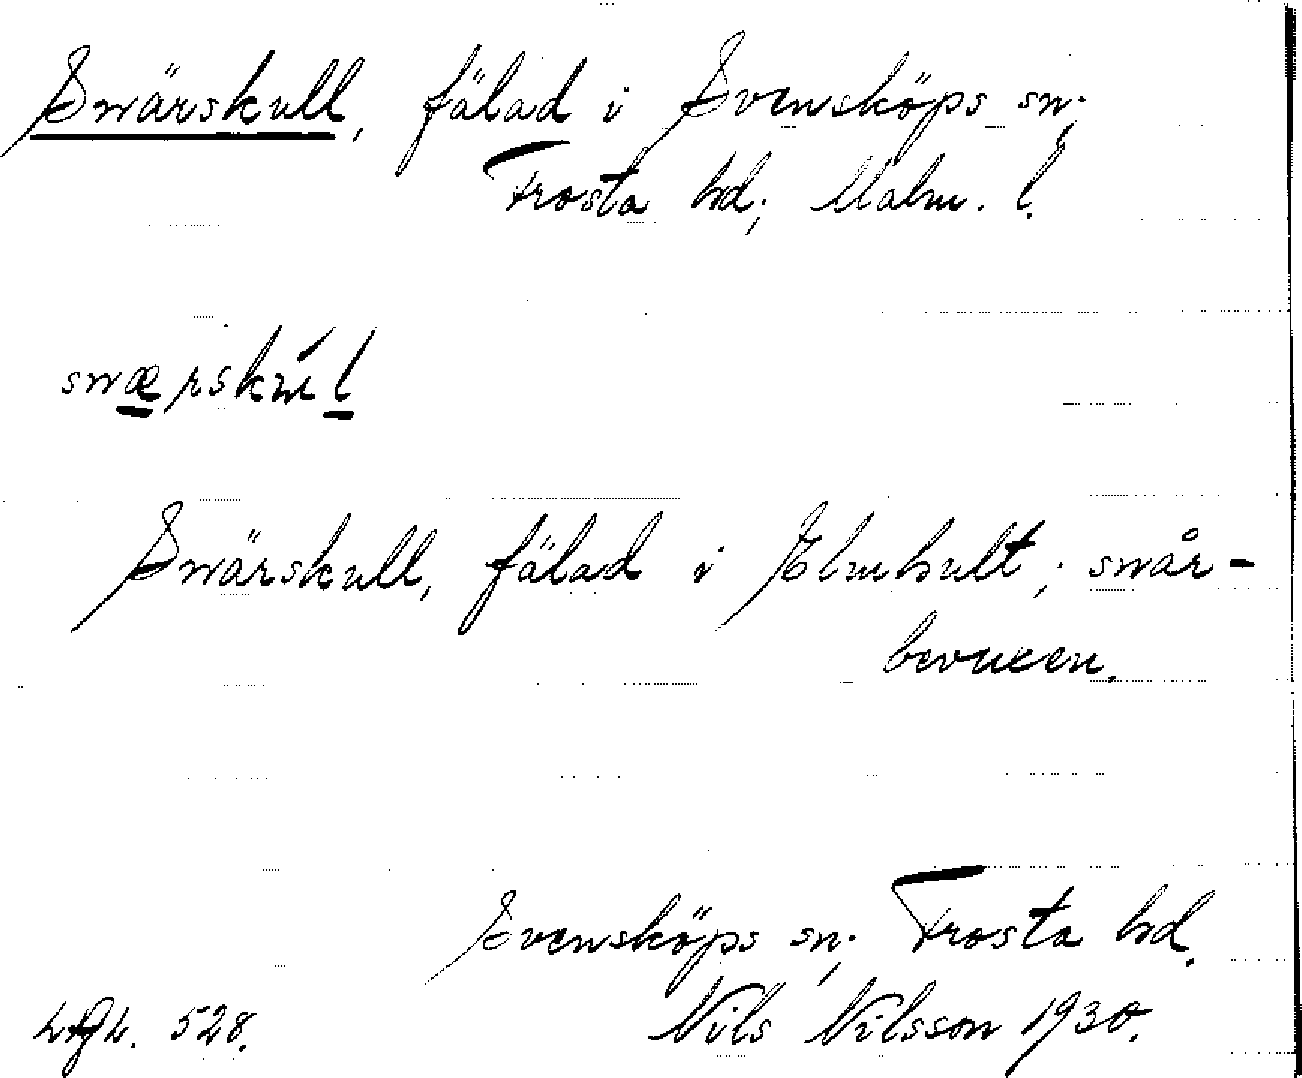 Svärskull, fälad i Svensköps sn;
Frosta hd; Malm. l.
Svärskull, fälad i Elmhult; svår-
bevuxen.
Svensköps sn; Frosta hd.
Nils Nilsson 1930.
528.